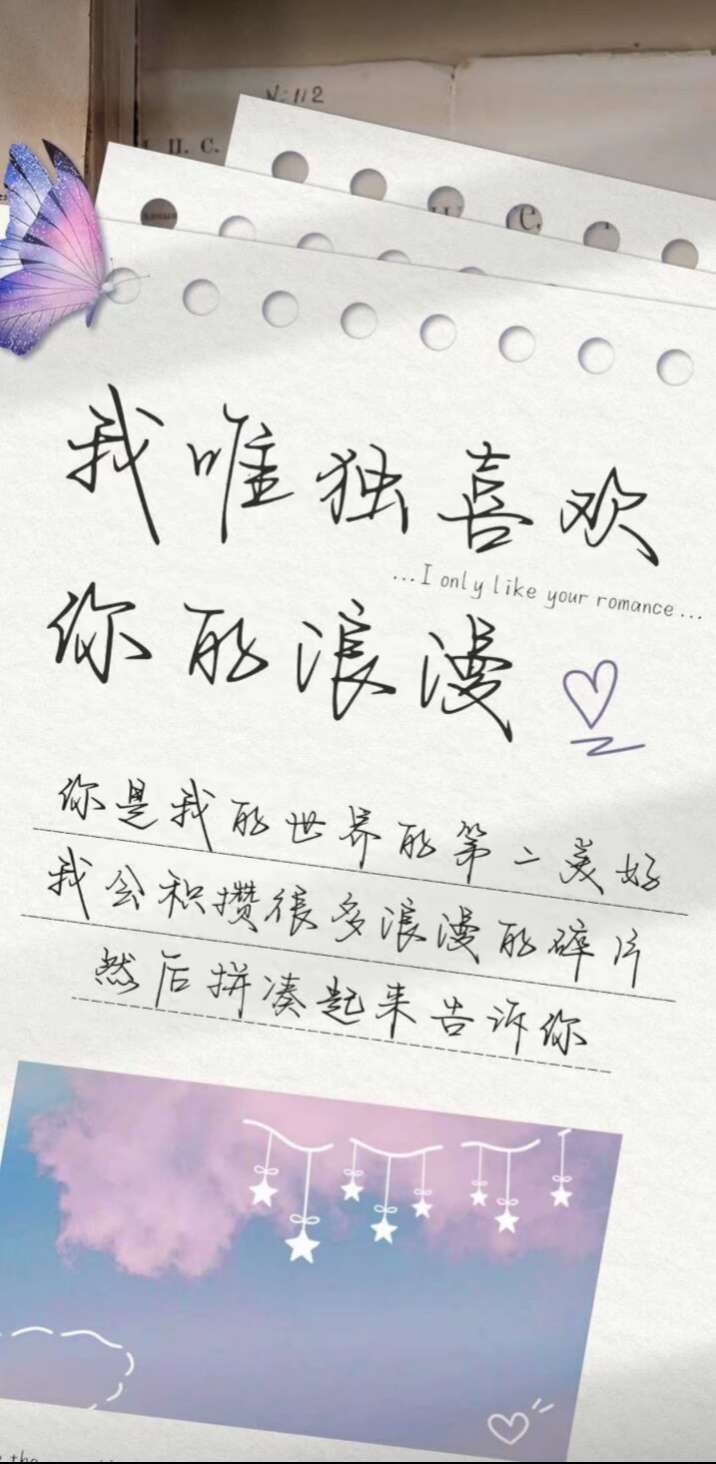 V:112
II. C.
C.
我唯独喜欢
...I only like your romance...
你的浪漫
你是我的世界的第二美好
我会积攒很多浪漫的碎片
然后拼凑起来告诉你
the